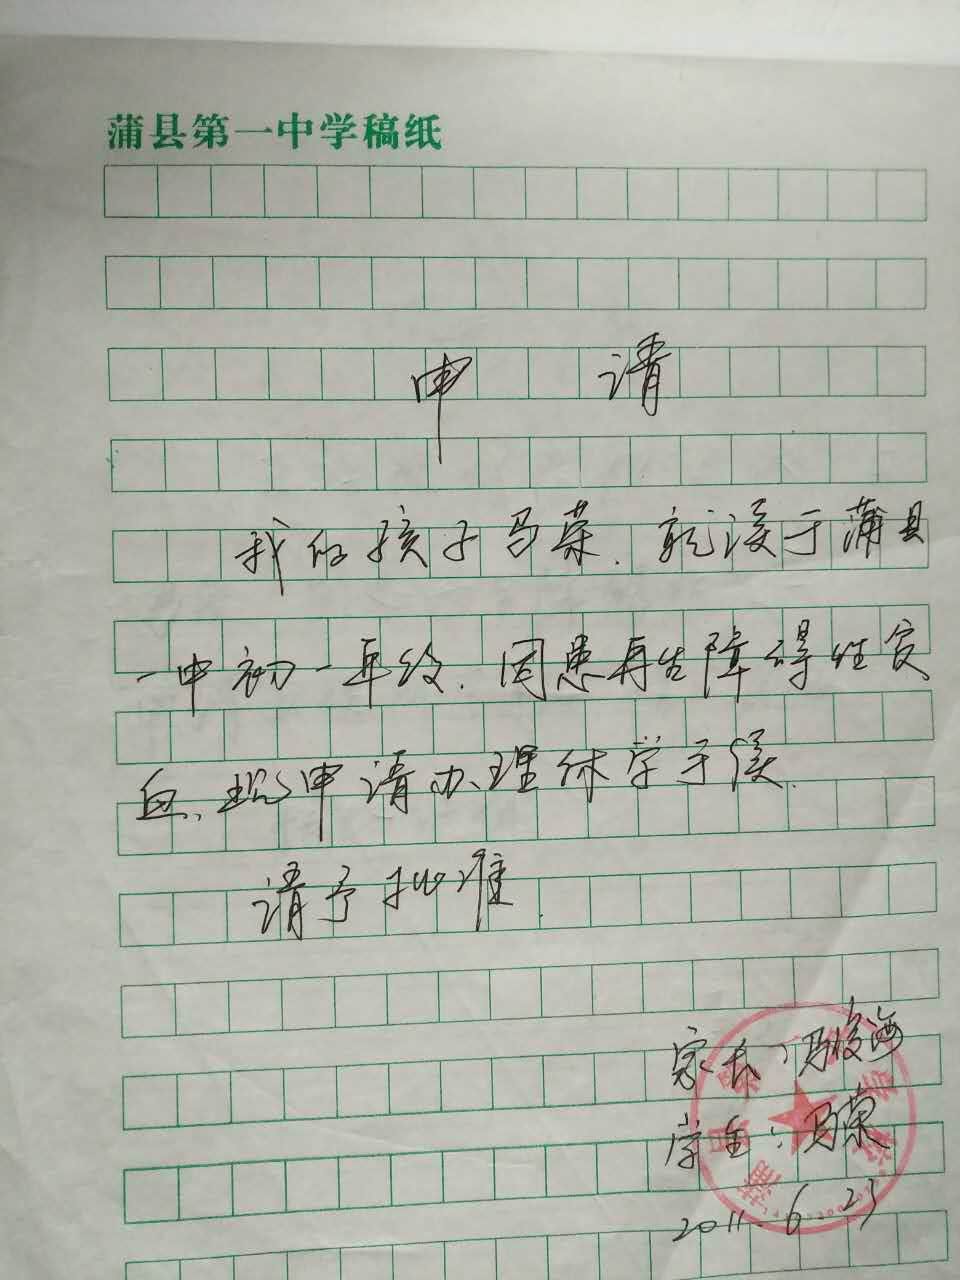 蒲县第一中学稿纸
申 请
我的孩子马荣.就读于蒲县
一中初一年级.因患再生障碍性贫
血、现申请办理休学手续.
请予批准.
家长:马俊海
学生:马荣
2011.6.23